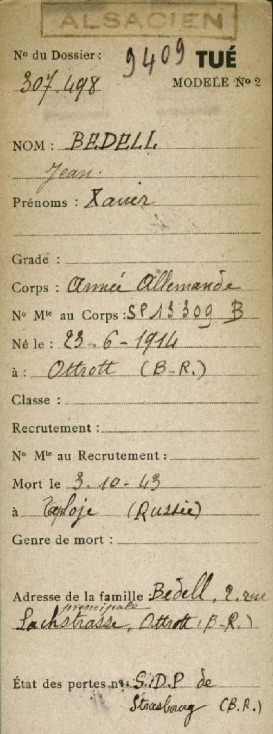 ALSACIEN
No du Dossier: 9409 TUÉ
307.498 MODELE No 2
NOM : BEDELL
Jean
Prénoms : Xavier
Grade :
Corps : Armée Allemande
No Mle au Corps : SP 13309 B
Né le : 23-6-1914
à : Ottrott (B-R.)
Classe :
Recrutement :
No Mle au Recrutement :
Mort le 3-10-43
à (Russie)
Genre de mort :
Adresse de la famille Bedell, 2, rue
principale
Ottrott (B-R.)
État des pertes no S.D.P de
Strasbourg (B.R.)